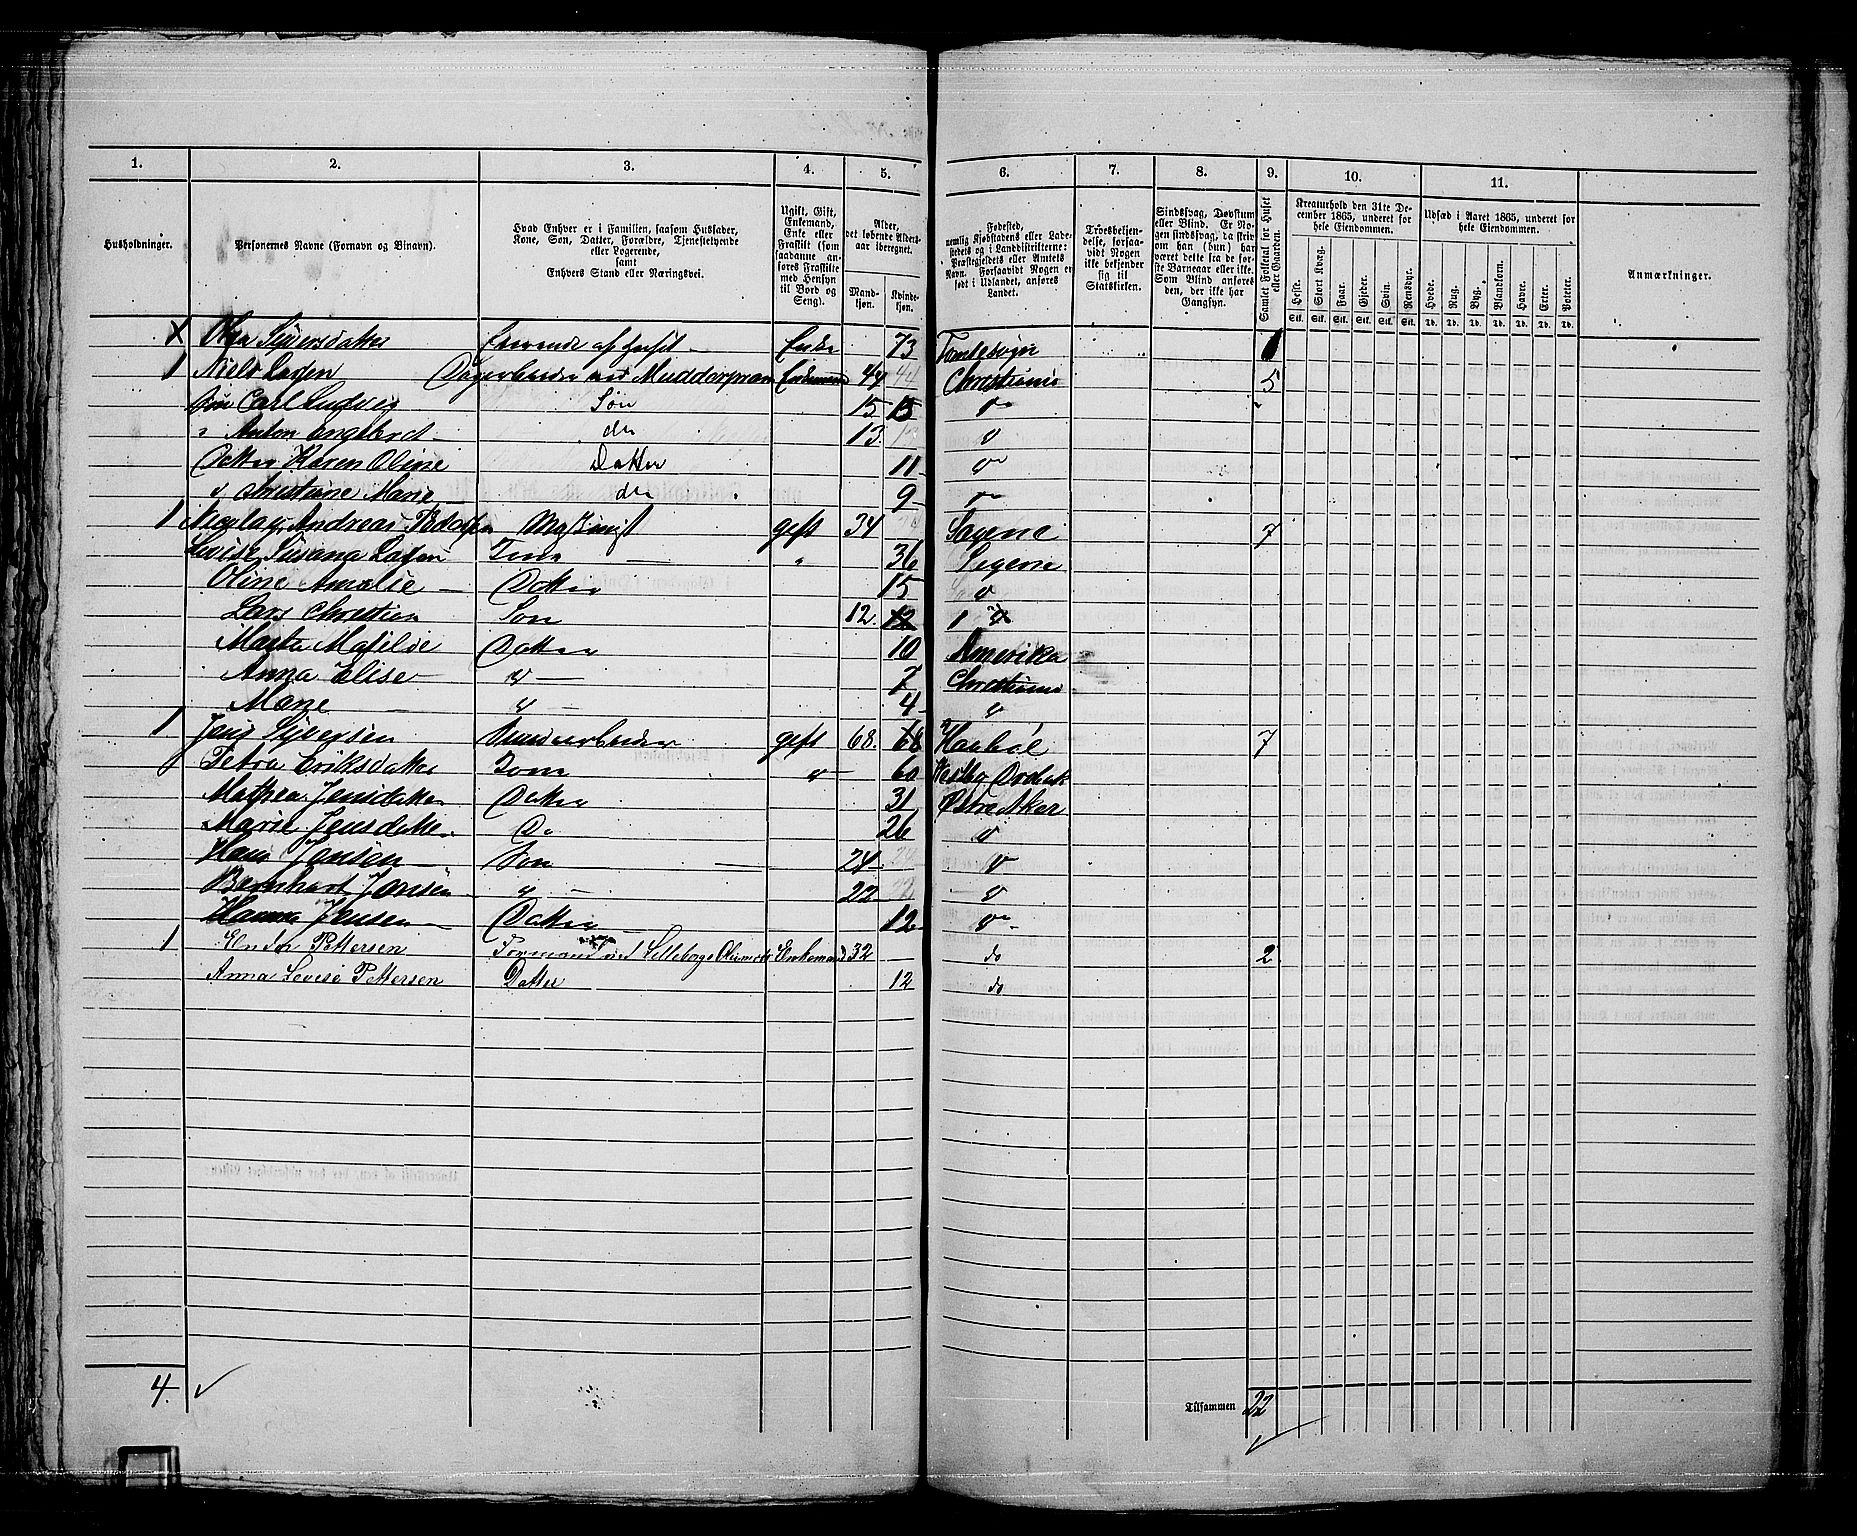 1. 2. 3. 4. 5. 6. 7. 8. 9. 10. 11.
Husholdninger.
Personernes Navne (Fornavn og Binavn).
Hvad Enhver er i Familien, saasom Husfader, Kone, Søn, Datter, Forældre, Tjenestetyende eller Logerende, samt Enhvers Stand eller Næringsvei.
Ugift, Gift, Enkemand, Enke eller Fraskilt (som saadanne anføres Fraskilte med Hensyn til Bord og Seng).
Alder, det løbende Alders-aar iberegnet.
Mand-kjøn. Kvinde-kjøn.
Fødested, nemlig Kjøbstadens eller Ladestedets og i Landdistrikterne: Præstegjeldets eller Amtets Navn. Forsaavidt Nogen er født i Udlandet, anføres Landet.
Troesbekjendelse, forsaavidt Nogen ikke bekjender sig til Statskirken.
Sindssvag, Døvstum eller Blind. Er Nogen sindssvag, da skrives om han (hun) har været dette fra de første Barneaar eller ikke. Som Blind anføres den, der ikke har Gangsyn.
Samlet Folketal for Huset eller Gaarden.
Kreaturhold den 31te December 1865, underet for hele Eiendommen.
Heste. Stort Kvæg. Faar. Gjeder. Svin. Rensdyr.
Udsæd i Aaret 1865, underet for hele Eiendommen.
Hvede. Rug. Byg. Blandkorn. Havre. Erter. Poteter.
Anmærkninger.
Stk. Stk. Stk. Stk. Stk. Stk. Td. Td. Td. Td. Td. Td. Td.
X Siversdatter af huset Enke 73 1
1 Niels Larsen Dagarbeider ved Mudderpram Enkemand 44 44 Christiania 5
Søn Carl Ludvig Søn 15 15 "
" Anton Engebret do 13 "
Datter Karen Oline Datter 11 "
" Christine Marie do 9 "
1 Nicolay Andreas Pedersen Maskinist gift 34 Sagene 7
Lovise Susana Larsen Kone " 36 Sagene
Oline Amalie Datter 15 "
Lars Christian Søn 12 12 "
Marta Matilde Datter 10 Amerika
Anna Elise " 7 Christiania
Marie " 4 "
1 Jens Sjversen gift 68 68 Haabøl 7
Petra Eriksdatter Kone " 60 Vestby
Mathea Jensdatter Datter 31 Østre Aker
Marie Jensdatter Do 26 "
Hans Jensen Søn 24 24 "
Bernhart Jensen " 22 22 "
Hanna Jensen Datter 12 "
1 Pettersen Formand ved Lilleborgs Enkemand 32 do 2
Anna Lovise Pettersen Datter 12 do
4. Tilsammen 22